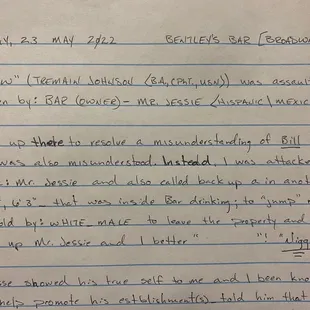 Y, 23 MAY 2022 BENTLEY'S BAR [BROADW
W" (TREMAIN JOHNSON (BA, CPhT, USN)) was assaul
en by: BAR (OWNER) - MR. JESSIE (HISPANIC\MEXIC
up there to resolve a misunderstanding of Bill
was also misunderstood. Instead, I was attacke
: Mr. Jessie and also called back up a in anot
6'3" that was inside Bar drinking; to "jump"
old by: WHITE_MALE to leave the property and
up Mr. Jessie and I better " "! "Nigg
sse showed his true self to me and I been kno
help promote his establishment(s) told him that